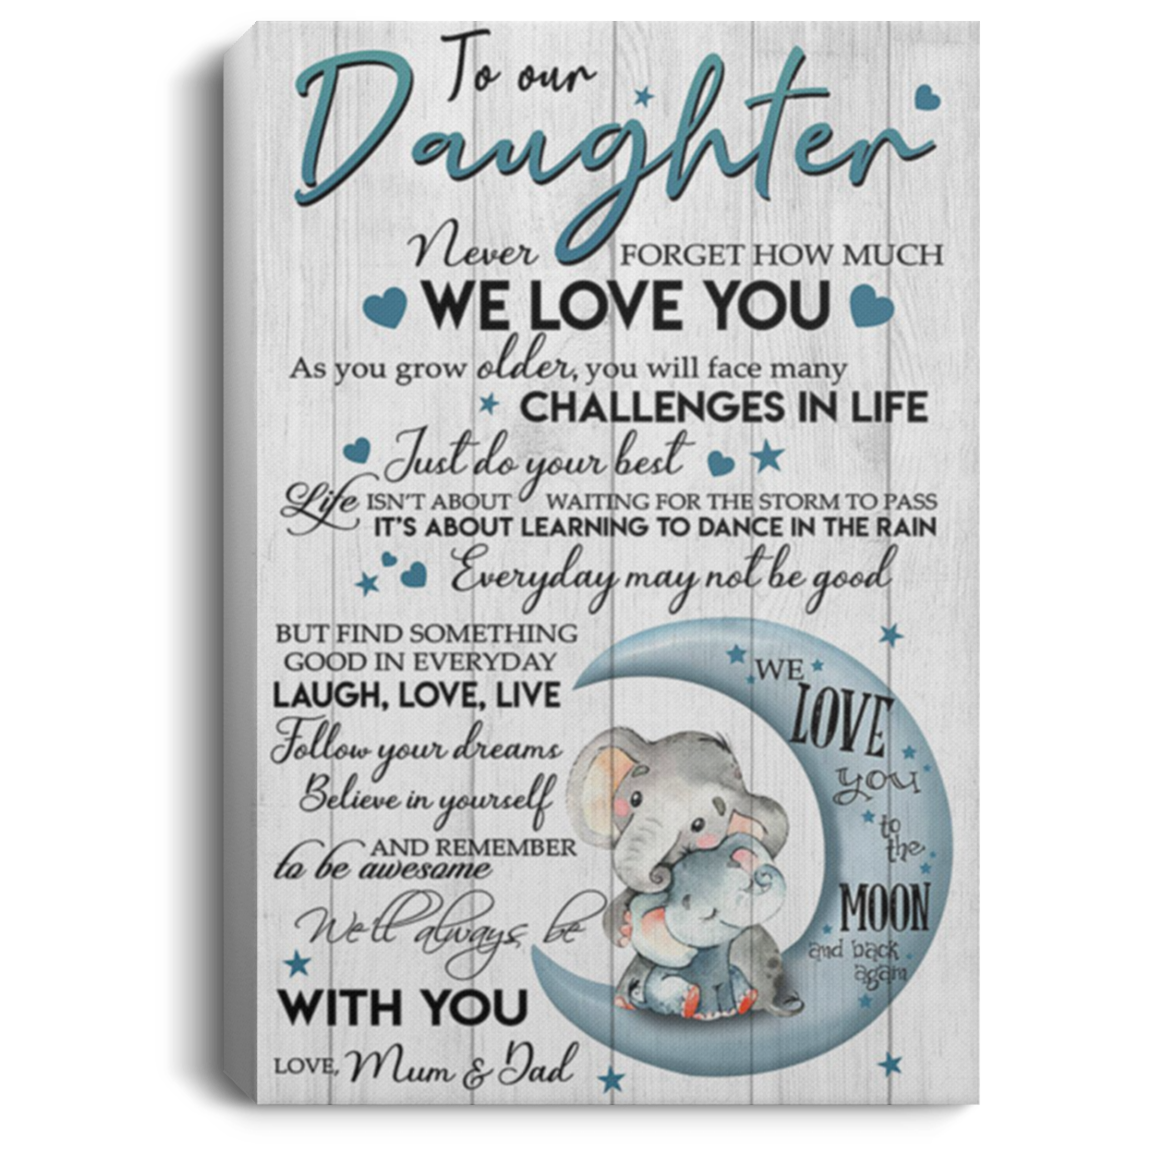 To our
Daughter
Never FORGET HOW MUCH
WE LOVE YOU
As you grow older, you will face many
CHALLENGES IN LIFE
Just do your best
Life ISN'T ABOUT WAITING FOR THE STORM TO PASS
IT'S ABOUT LEARNING TO DANCE IN THE RAIN
Everyday may not be good
BUT FIND SOMETHING
GOOD IN EVERYDAY
LAUGH, LOVE, LIVE
Follow your dreams
Believe in yourself
AND REMEMBER
to be awesome
We'll always be
WITH YOU
LOVE, Mum & Dad
WE
LOVE
you
to
the
MOON
and back
again